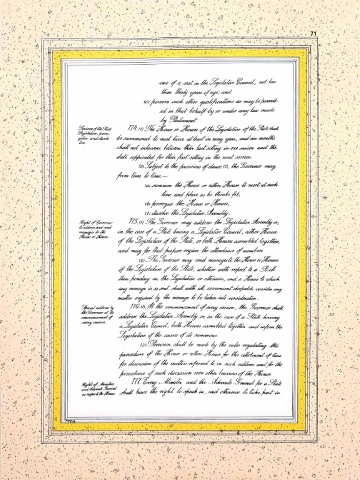 71
case of a seat in the Legislative Council, not less
than thirty years of age; and
(c) possesses such other qualifications as may be prescrib-
ed in that behalf by or under any law made
by Parliament.
174. (1) The House or Houses of the Legislature of the State shall
be summoned to meet twice at least in every year, and six months
shall not intervene between their last sitting in one session and the
date appointed for their first sitting in the next session.
(2) Subject to the provisions of clause (1), the Governor may
from time to time—
(a) summon the House or either House to meet at such
time and place as he thinks fit;
(b) prorogue the House or Houses;
(c) dissolve the Legislative Assembly.
Right of Governor
to address and send
messages to the
House or Houses.
175. (1) The Governor may address the Legislative Assembly or,
in the case of a State having a Legislative Council, either House
of the Legislature of the State, or both Houses assembled together,
and may for that purpose require the attendance of members.
(2) The Governor may send messages to the House or Houses
of the Legislature of the State, whether with respect to a Bill
then pending in the Legislature or otherwise, and a House to which
any message is so sent shall with all convenient despatch consider any
matter required by the message to be taken into consideration.
Special address by
the Governor at the
commencement of
every session.
176. (1) At the commencement of every session, the Governor shall
address the Legislative Assembly or, in the case of a State having
a Legislative Council, both Houses assembled together and inform the
Legislature of the causes of its summons.
(2) Provision shall be made by the rules regulating the
procedure of the House or either House for the allotment of time
for discussion of the matters referred to in such address and for the
precedence of such discussion over other business of the House.
Rights of Ministers
and Advocate-General
as respects the Houses.
177. Every Minister and the Advocate-General for a State
shall have the right to speak in, and otherwise to take part in